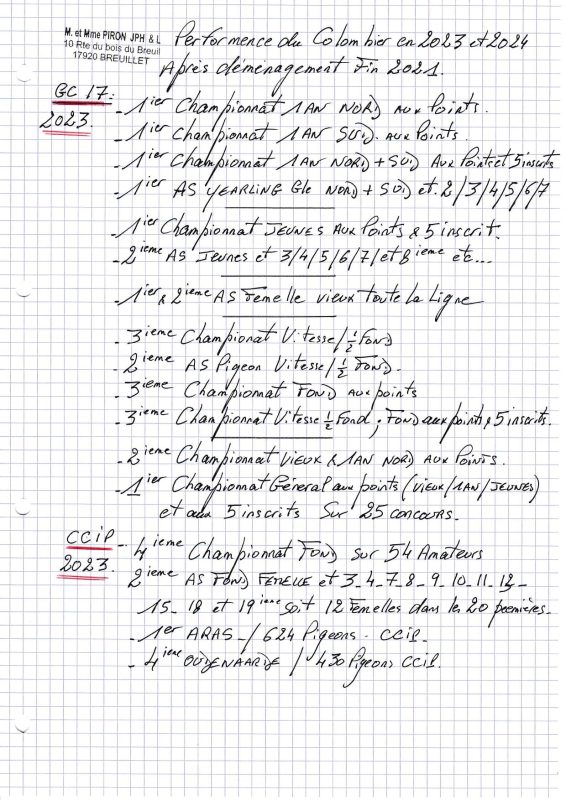 M. et Mme PIRON JPH & L
10 Rte du bois du Breuil
17920 BREUILLET
Performence du Colombier en 2023 et 2024
Après déménagement Fin 2021.
GC 17:
2023.
- 1ier Championnat 1AN NORD AUX Points.
- 1ier Championnat 1AN SUD. AUX Points.
- 1ier Championnat 1AN NORD + SUD Aux Points et 5 inscrits
- 1ier AS YEARLING Gle NORD + SUD et 2/3/4/5/6/7
- 1ier Championnat JEUNES AUX Points & 5 inscrit.
- 2ieme AS Jeunes et 3/4/5/6/7/et 8ieme etc...
- 1ier & 2ieme AS Femelle vieux toute la Ligne
- 3ieme Championat Vitesse/½ Fond
- 2ieme AS Pigeon Vitesse/½ FOND.
- 3ieme Championnat FOND AUX points
- 3ieme Championnat Vitesse ½ Fond, FOND aux points & 5 inscrits.
- 2ieme Championnat VIEUX & 1AN NORD AUX Points.
- 1ier Championnat Géneral aux points (VIEUX/1AN/JEUNES)
et aux 5 inscrits Sur 25 CONCOURS.
CCiP
2023.
- 4ieme Championnat FOND Sur 54 Amateurs
2ieme AS FOND FEMELLE et 3_4_7_8_9_10_11_12_
15_18 et 19ieme soit 12 Femelles dans les 20 premières.
- 1er ARAS_/ 624 Pigeons - CCiP.
- 4ieme OUDENAARDE / 430 Pigeons CCiP.